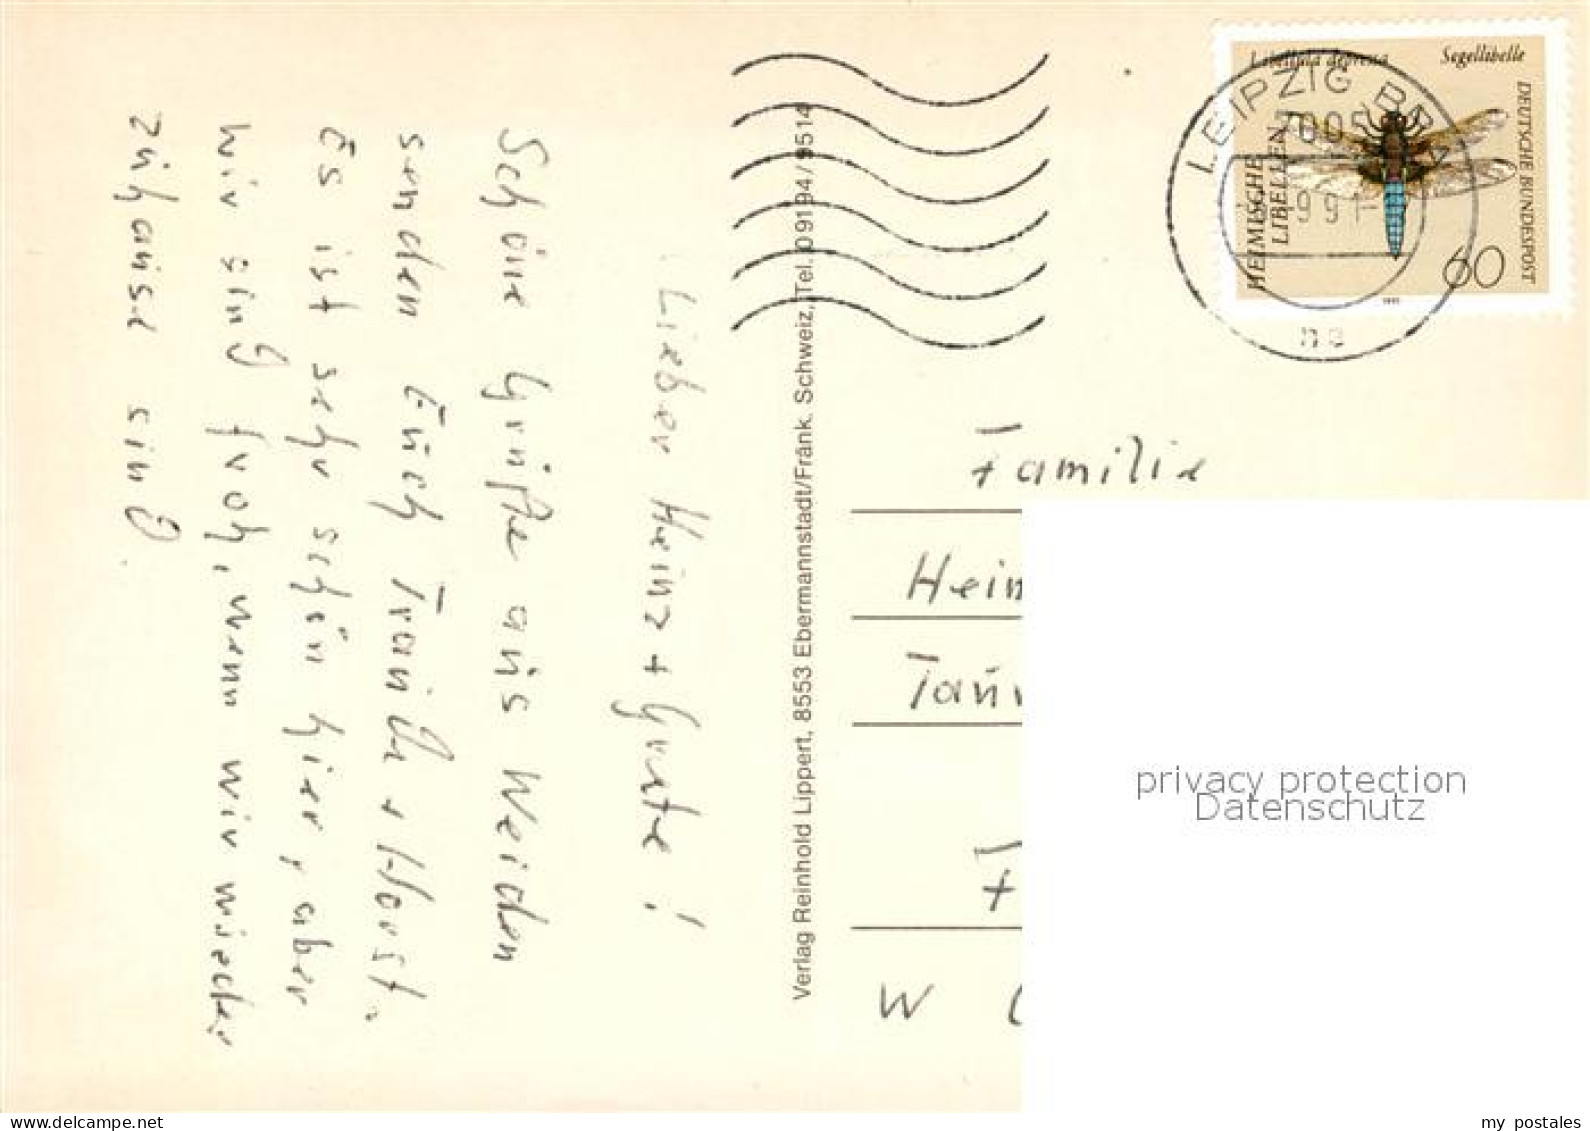 Lieber Heinz + Grete!
Schöne Grüße aus Weiden
senden Euch Traudl + Horst.
Es ist sehr schön hier, aber
wir sind froh, wenn wir wieder
zuhause sind.
Verlag Reinhold Lippert, 8553 Ebermannstadt/Fränk. Schweiz, Tel. 09194/9514
Libellula depressa Segellibelle
HEIMISCHE
LIBELLEN
DEUTSCHE BUNDESPOST
60
1991
LEIPZIG BPA
7005
991
na
Familie
Hein
Tau
W
privacy protection
Datenschutz
www.delcampe.net
my_postales